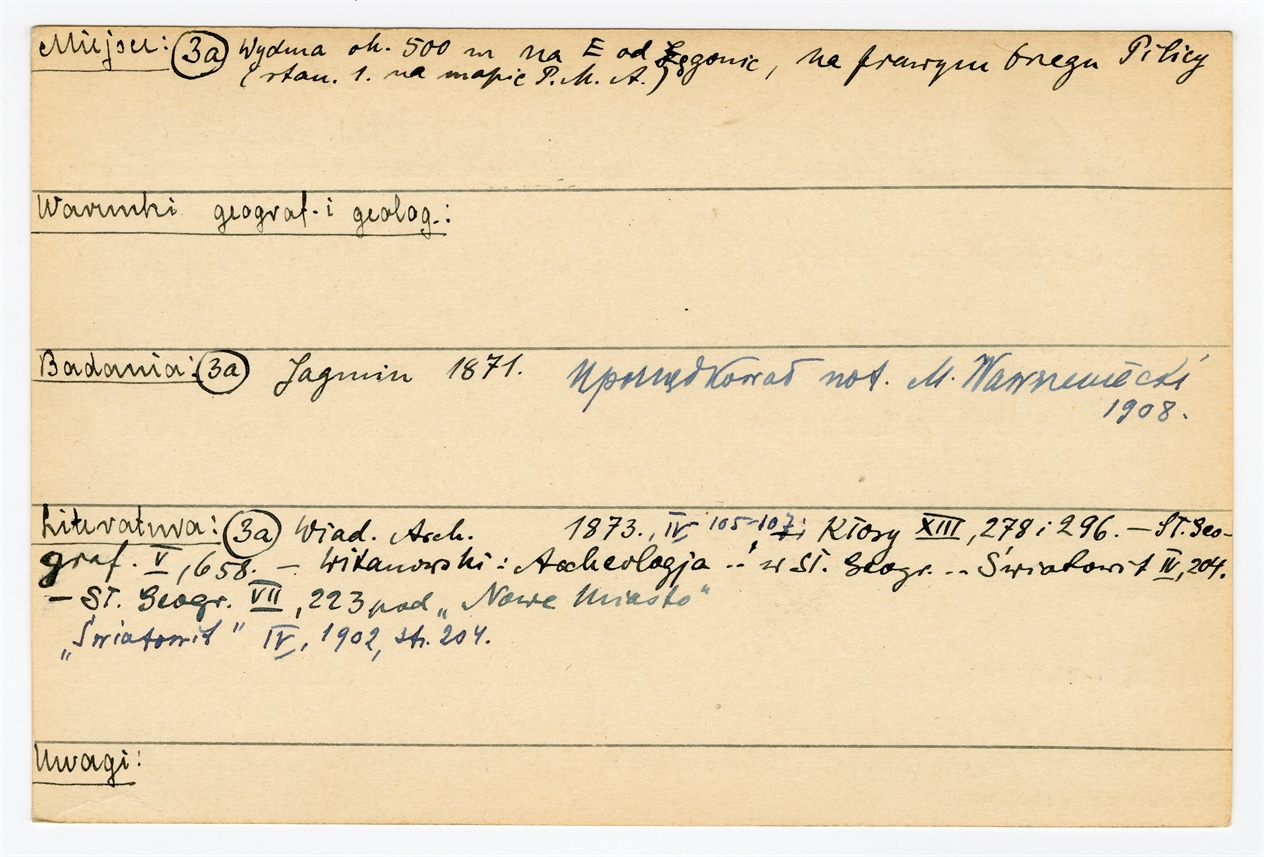 Miejsce: (3a) Wydma ok. 500 m na E od Łęgonic, na prawym brzegu Pilicy
(stan. 1. na mapie P.M.A.)
Warunki geograf. i geolog.:
Badania: (3a) Jagmin 1871. Uporządkował not. M. Wawrzeniecki
1908.
Literatura: (3a) Wiad. Arch. 1873., IV 105-107; Kłosy XIII, 278 i 296. — Sł. Geo-
graf. V, 658. — Witanowski: Archeologja .. w Sł. Geogr. .. Światowit IV, 204.
— Sł. Geogr. VII, 223 pod „Nowe Miasto"
„Światowit" IV, 1902, str. 204.
Uwagi: